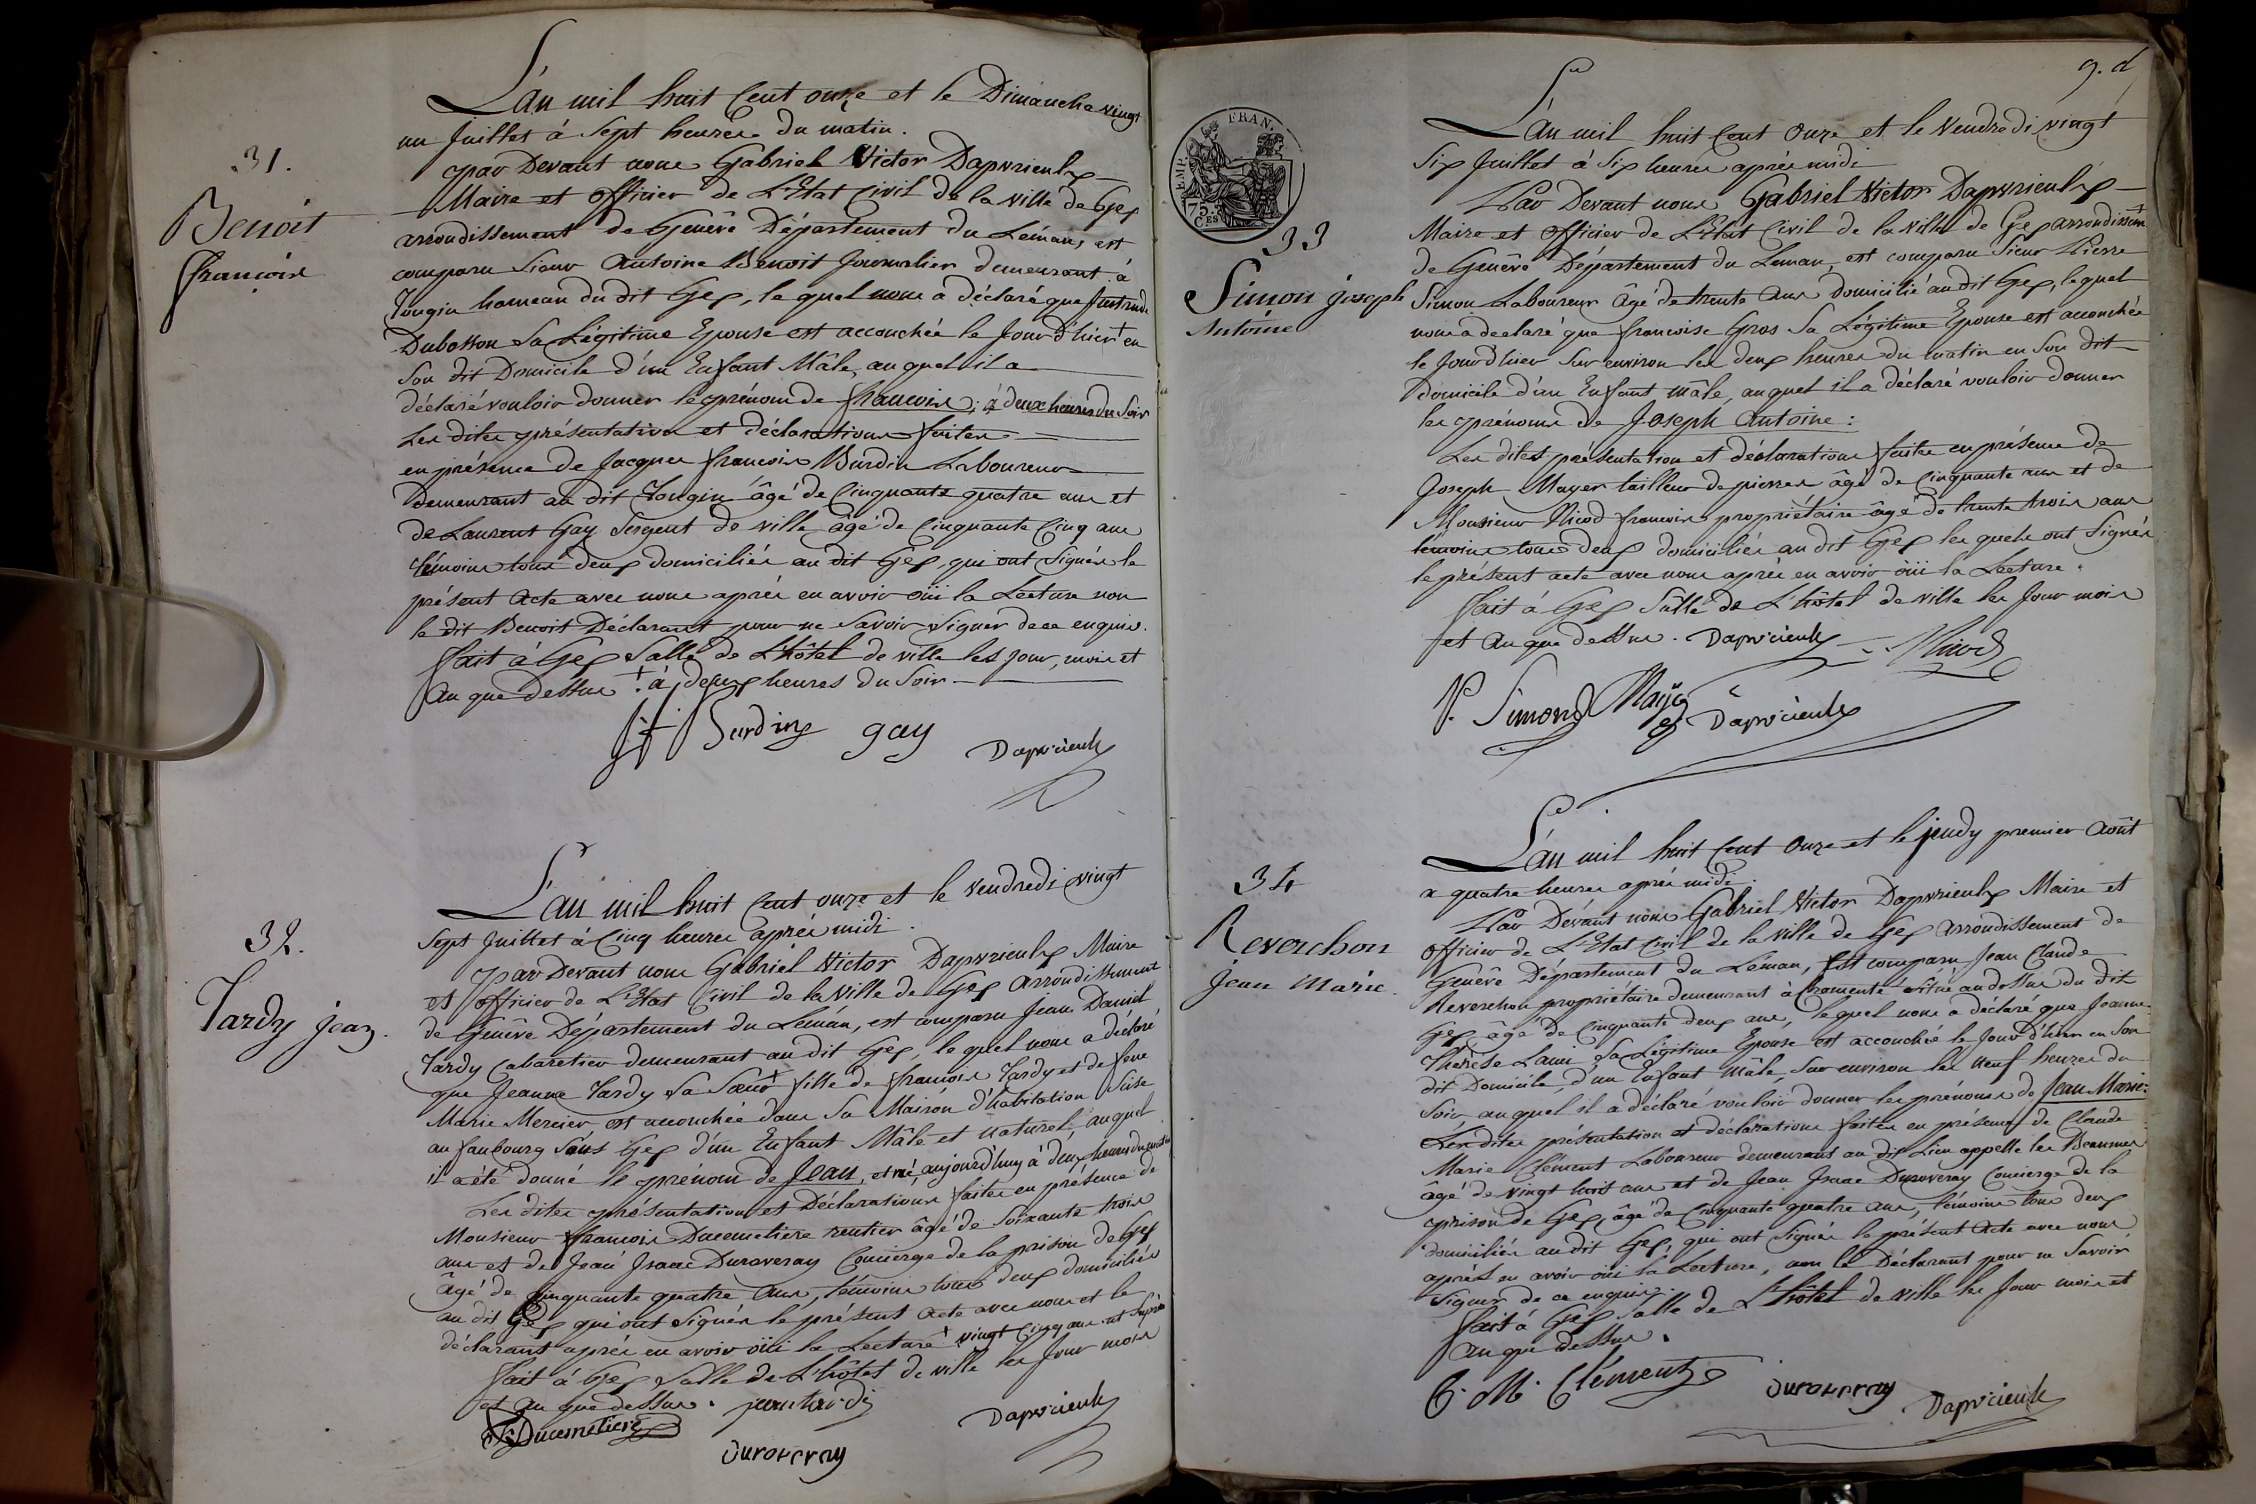 31.
Benoit
françois
L'an mil huit Cent onze et le Dimanche vingt
un Juillet à Sept heures du matin.
par Devant nous Gabriel Victor Dapvrieulx
Maire et officier de L'Etat Civil de la ville de Gex
arrondissement de Genêve Département du Léman, est
comparu Sieur Antoine Benoit Journalier demeurant à
Tougin hameau du dit Gex, le quel nous a déclaré que
Dubosson Sa Légitime Epouse est accouchée le Jour d'hier + en
Son dit Domicile d'un Enfant Mâle, au quel il a
déclaré vouloir donner le prénom de françois; à deux heures du Soir
Les dites présentation et déclarations faites
en présence de Jacques françois Burdin Laboureur
Demeurant au dit Tougin âgé de Cinquante quatre ans et
de Laurent Gay Sergent de ville âgé de Cinquante Cinq ans
témoins tous deux domiciliés au dit Gex, qui ont Signés le
présent Acte avec nous après en avoir oüi la Lecture non
le dit Benoit Déclarant pour ne Savoir Signer de ce enquis.
fait à Gex Salle de L'hôtel de ville les jour, mois et
An que dessus + à deux heures du Soir
Burdin gay
Dapvrieulx
32.
Tardy jean.
L'an mil huit Cent onze et le Vendredi vingt
Sept Juillet à Cinq heures après midi.
par Devant nous Gabriel Victor Dapvrieulx Maire
et officier de L'Etat Civil de la Ville de Gex Arrondissement
de Genêve Département du Léman, est comparu Jean Daniel
Tardy Cabaretier demeurant au dit Gex, le quel nous a déclaré
que Jeanne Tardy Sa Sœur + fille de françois Tardy et de feue
Marie Mercier est accouchée dans Sa Maison d'habitation Scise
au faubourg Sous Gex d'un Enfant Mâle et naturel, au quel
il a été donné le prénom de Jean, et né, aujourd'huy à deux heures du matin
Les dites présentation et Déclarations faites en présence de
Monsieur françois Ducimetiere rentier âgé de Soixante trois
ans et de Jean Isaac Duroveray Concierge de la prison de Gex
âgé de Cinquante quatre ans, témoins tous deux domiciliés
au dit Gex qui ont Signés le présent Acte avec nous et le
déclarant après en avoir oüi la Lecture + vingt Cinq ans
fait à Gex Salle de L'hôtel de ville les Jour mois
et An que dessus. jean tardi
Ducimetiere
Duroveray
Dapvrieulx
EMP. FRAN.
75 CES
33
Simon joseph
Antoine
L'an mil huit Cent Onze et le Vendredi vingt
Six Juillet à Six heures après midi
Par Devant nous Gabriel Victor Dapvrieulx
Maire et officier de L'Etat Civil de la Ville de Gex arrondissemt
de Genêve Département du Leman, est comparu Sieur Pierre
Simon Laboureur âgé de trente ans domicilié au dit Gex, le quel
nous a declaré que françoise Gros Sa Légitime Epouse est accouchée
le Jour d'hier Sur environ les deux heures du matin en Son dit
Domicile d'un Enfant mâle, au quel il a déclaré vouloir donner
les prénoms de Joseph Antoine:
Les dites présentation et déclarations faites en présence de
Joseph Mayer tailleur de pierres âgé de Cinquante ans et de
Monsieur Nicod françois propriétaire âgé de trente trois ans
témoins tous deux domiciliés au dit Gex les quels ont Signés
le présent acte avec nous après en avoir oüi la Lecture.
fait à Gex Salle de L'hôtel de ville les Jour mois
et An que dessus. Dapvrieulx Nicod
P. Simond Dapvrieulx
34
Reverchon
jean Marie.
L'an mil huit Cent Onze et le jeudy premier Août
a quatre heures après midi.
Par Dévant nous Gabriel Victor Dapvrieulx Maire et
officier de L'Etat Civil de la Ville de Gex Arrondissement de
Genêve Département du Léman, Est comparu Jean Claude
Reverchon propriétaire demeurant à situé au dessus du dit
Gex, âgé de Cinquante deux ans, le quel nous a déclaré que Jeanne
Therèse Lami Sa Légitime Epouse est accouchée le Jour d'hier en Son
dit Domicile, d'un Enfant mâle, Sur environ les Neuf heures du
Soir au quel il a déclaré vouloir donner les prénoms de Jean Marie:
Les dites présentation et déclarations faites en présence de Claude
Marie Clément Laboureur demeurant au dit Lieu appellé les
âgé de vingt huit ans et de Jean Isaac Duroveray Concierge de la
prison de Gex, âgé de Cinquante quatre ans, témoins tous deux
domiciliés au dit Gex, qui ont Signés le présent Acte avec nous
après en avoir oüi la Lecture, non le Déclarant pour ne Savoir
Signer de ce enquis.
fait à Gex Salle de L'hôtel de ville les Jour mois et
An que dessus.
C. M. Clément Duroveray Dapvrieulx